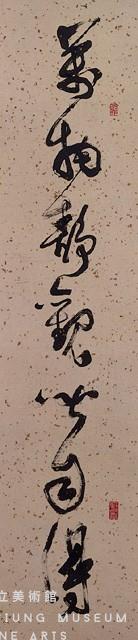 萬物靜觀皆自得
立美術館
IUNG MUSEUM
NE ARTS